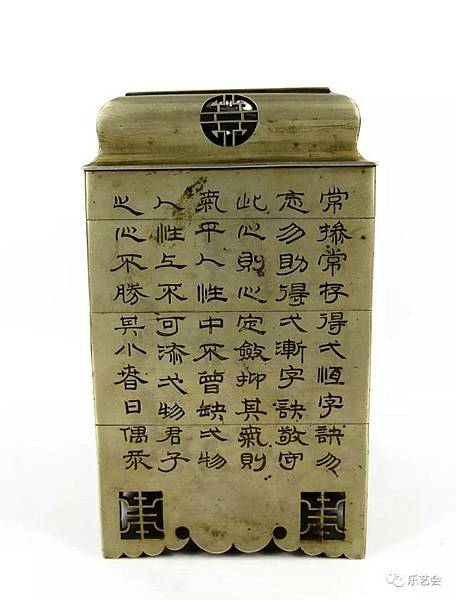 常操常存得弌恆字訣勿
忘勿助得弌漸字訣敬守
此心則心定斂抑其氣則
氣平人性中不曾缺弌物
人性上不可添弌物君子
之心不勝其小春日偶
乐艺会